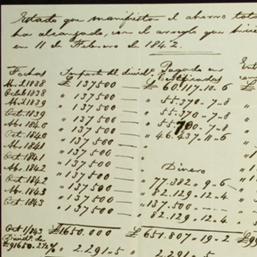 Estado que manifiesta el ahorro tota
ha alcanzado, con el arreglo que hizo
en 11 de Febrero de 1842.
Fechas Importe del divid. Pagado en
Ab. 1838 £ 137500 — £ 60.117.10-6
Oct. 1838 " 137500 — " 55.370-7-8
Ab. 1839 " 137500 — " 55.370-7-8
Oct. 1839 " 137500 — " 55.370-7-8
Ab. 1840 " 137500 — " 46.437.11-6
Oct. 1840 " 137500
Ab. 1841 " 137500 Dinero
Oct. 1841 " 137500 — " 77.382-9-6
Ab. 1842 " 137500 — " 82.129-12-4
Oct. 1842 " 137500 — " 137.500
Ab. 1843 " 137500 — " 82.129-12-4
Oct. 1843 " 137500
£1650.000 — £ 651.807-19-2
" 2.291-5 " 2.291-5